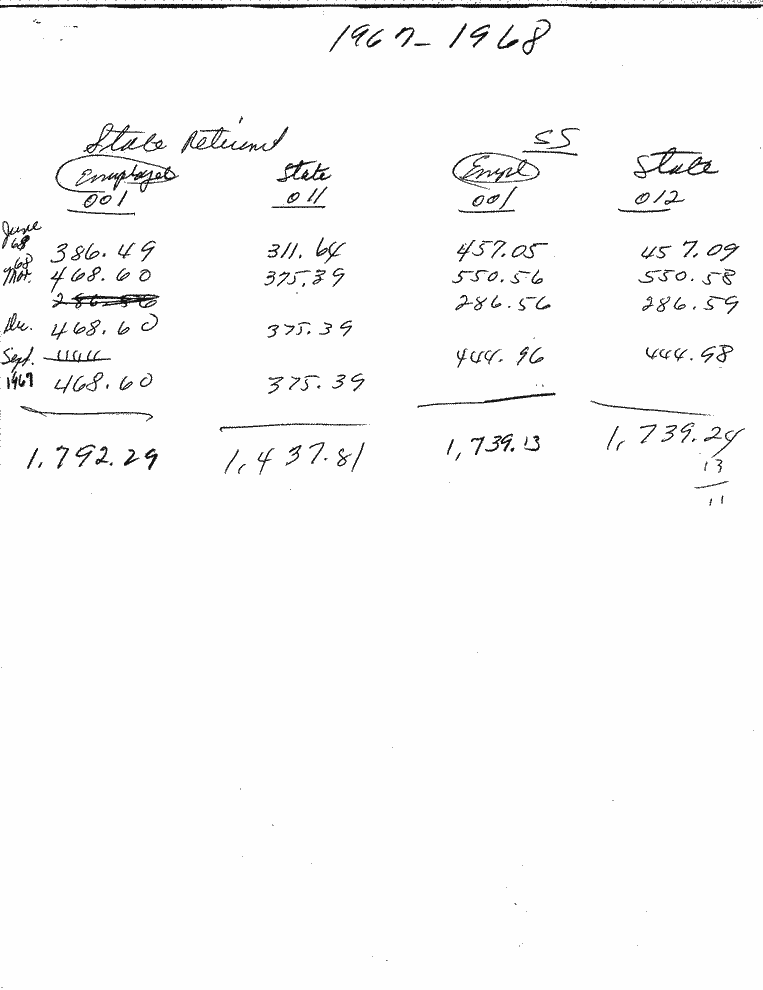 1967-1968
State Retirement SS
Employee State Empl State
001 011 001 012
June 68 386.49 311.64 457.05 457.09
Mar. 68 468.60 375.39 550.56 550.58
286.56 286.56 286.59
Dec. 468.60 375.39
Sept. 444.96 444.98
1967 468.60 375.39
1,792.29 1,437.81 1,739.13 1,739.24
13
11